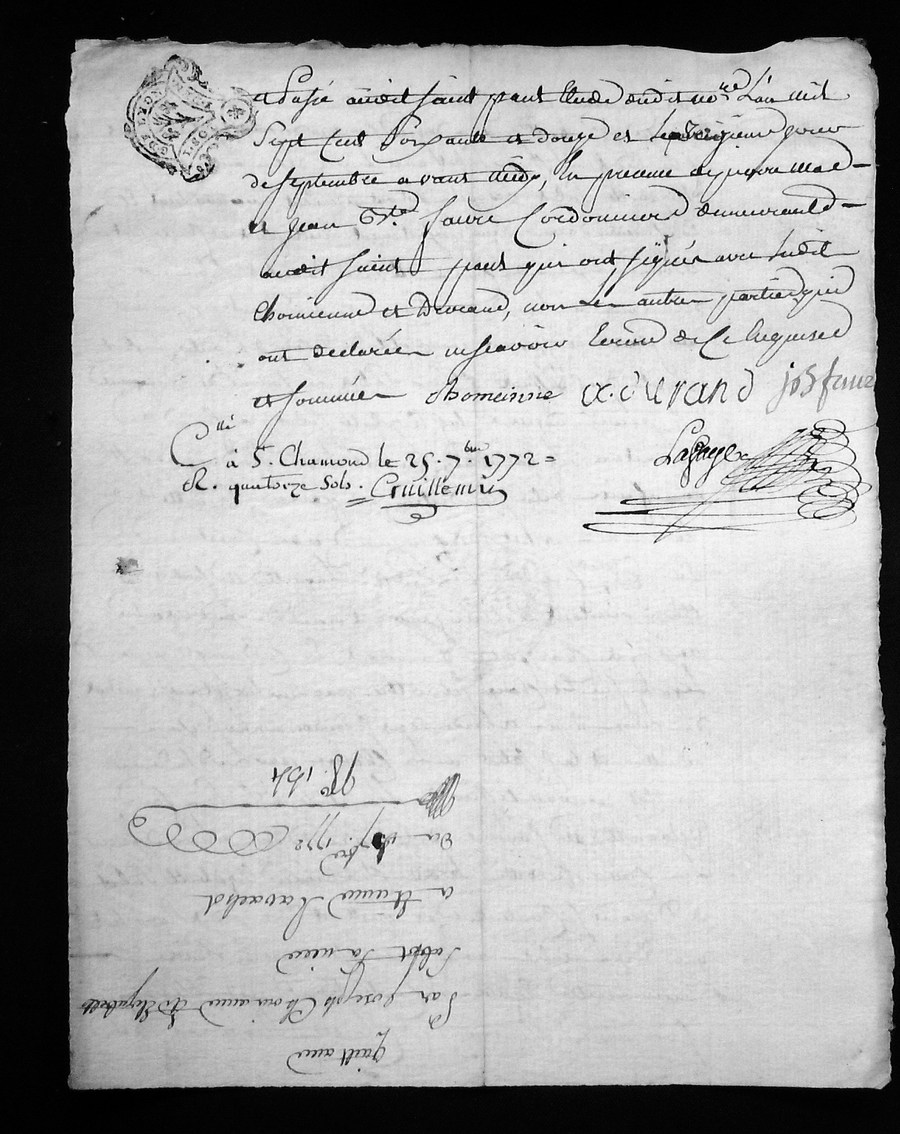 et passé audit saint paul Etude dudit no.re L'an mil
Sept Cent Soixante et douze et le
jour
de septembre avant midy, En presence de pierre
et Jean B.te faure Cordonniers demeurant
audit saint paul qui ont signés avec ledit
Chomienne et Durand, non les autres parties qui
ont declarées ne scavoir Ecrire de Ce Enquises
et sommées chomeinne a. durand jb faure
C.llé à S.t Chamond le 25. 7.bre 1772 =
R. quatorze sols. =
Guillemin
Lafage
quittance
Par Joseph Chomienne et Elizabeth
a Etienne
Du
7.bre 1772